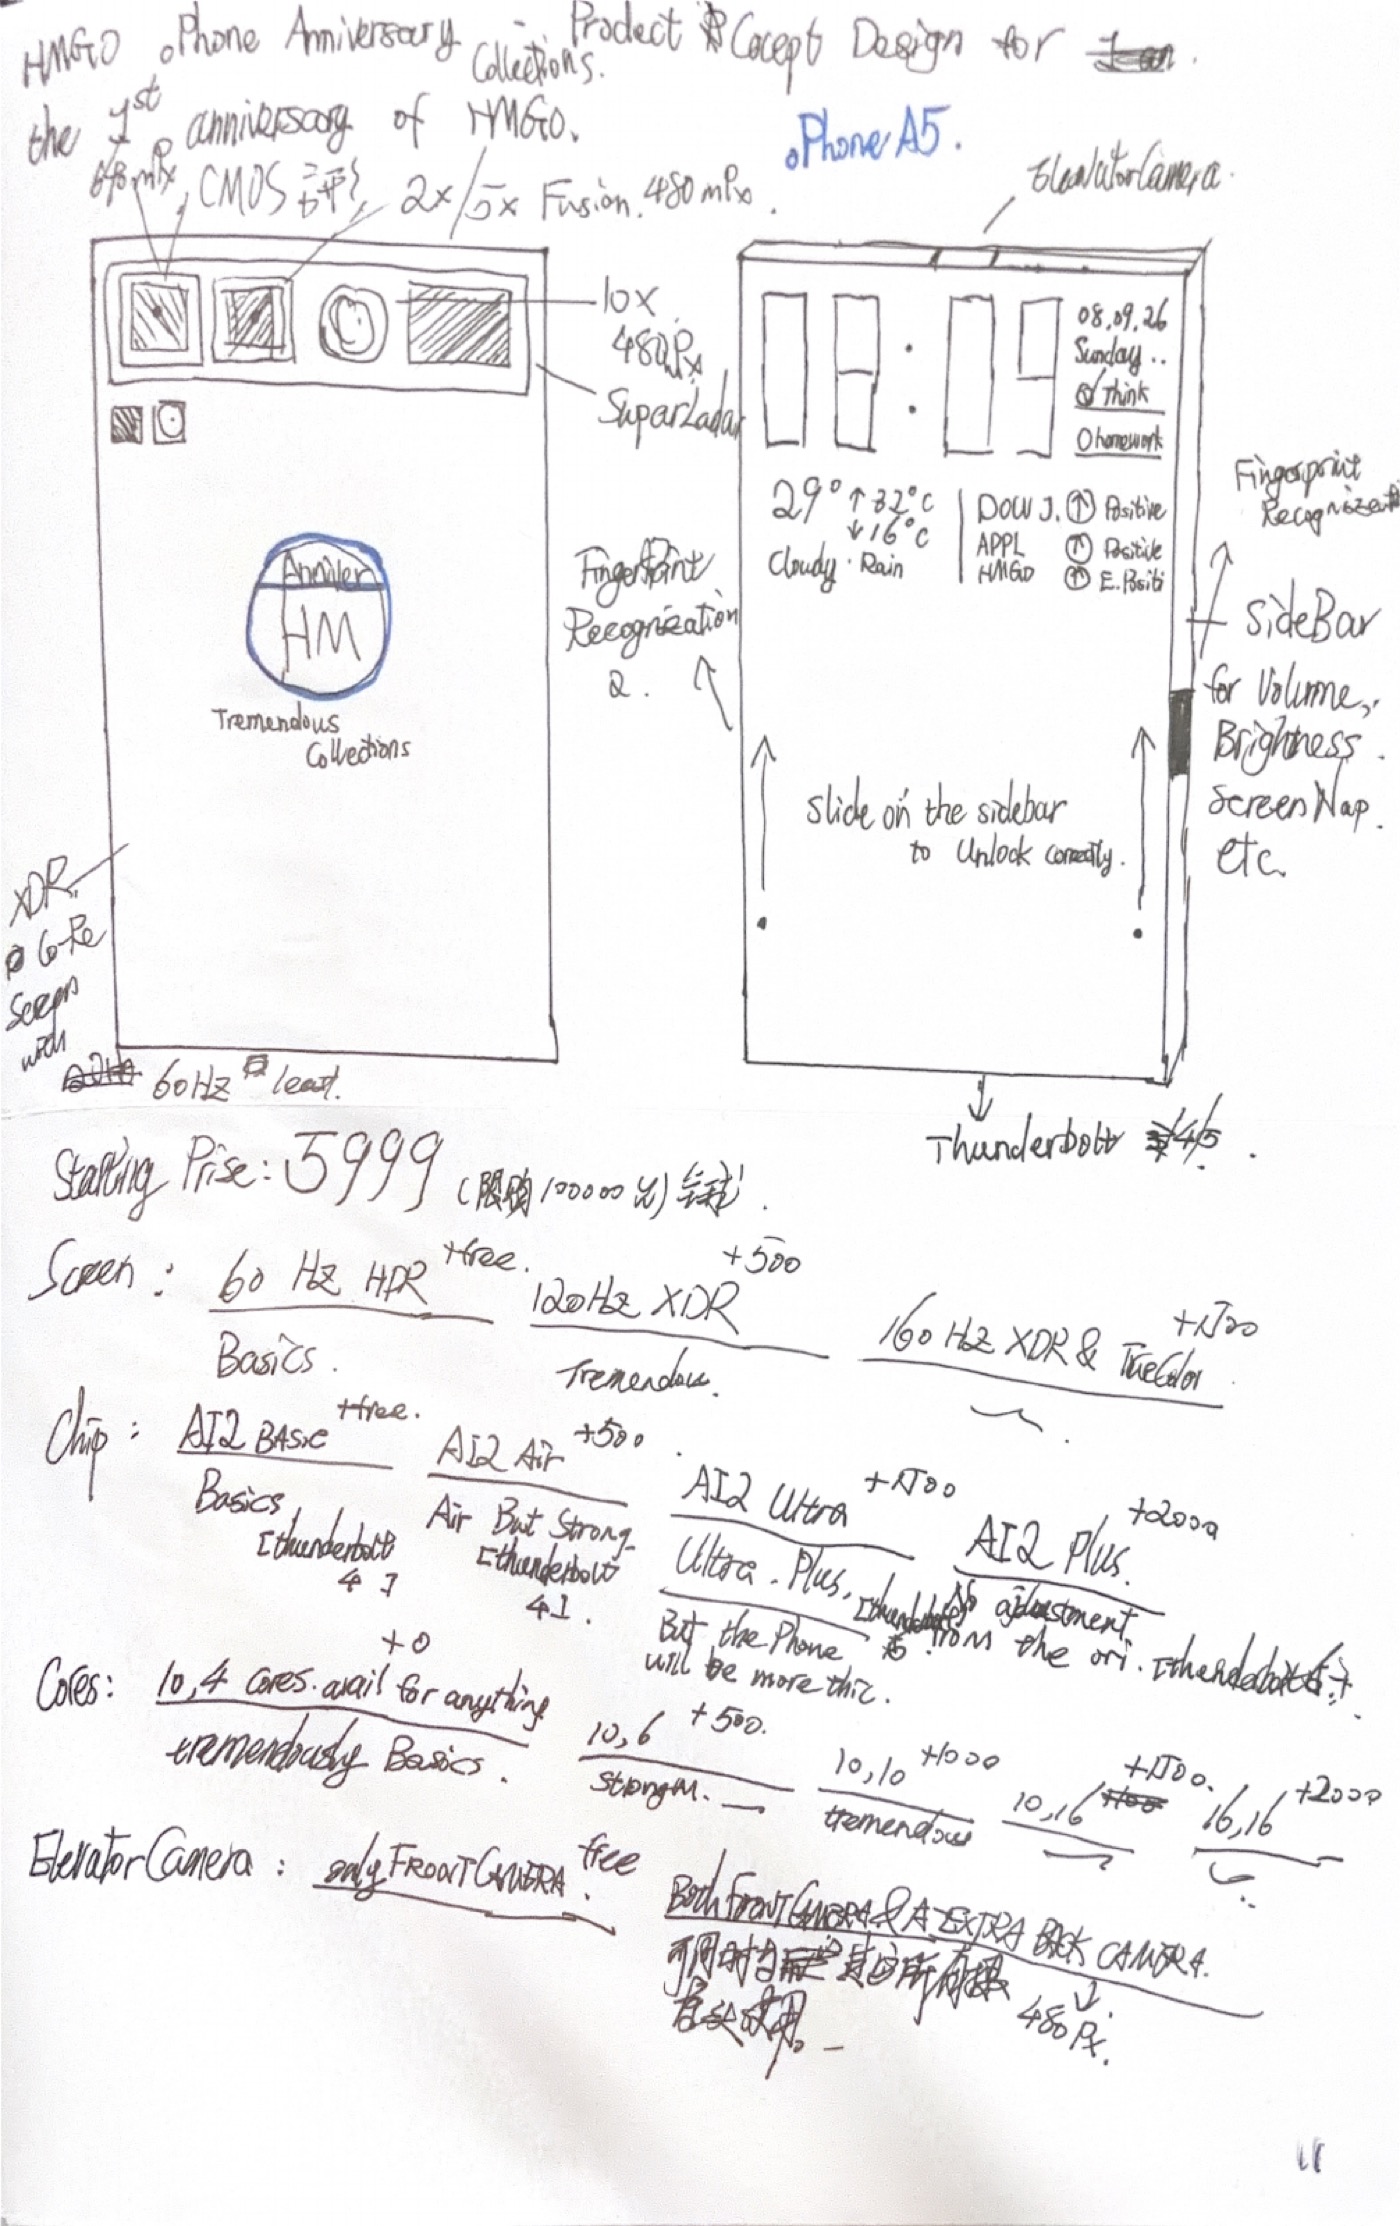 HMGO oPhone Anniversary Collections. - Product Cocept Design for
the 1st anniversary of HMGO.
oPhone A5.
648 mPx, CMOS 2x/5x Fusion. 480 mPx.
ElavatorCamera.
10x
480Px
SuparLadar
Anniver
HM
Tremendous
Collections
XDR
Co-Re
Screen
with
60Hz least.
08.09.26
Sunday..
Think
homework
29° ↑32°C
↓16°C
Cloudy · Rain
DOW J. ↑ Positive
APPL ↑ Positive
HMGO ↑ E.Positi
Fingerprint
Recognization
2.
Fingerprint
Recognize
SideBar
for Volume,
Brightness.
ScreenNap.
etc.
Slide on the sidebar
to Unlock correctly.
Thunderbolt 4/5.
Starting Prise: 5999 (限购100000元)
Screen: 60 Hz HDR +free. 120Hz XDR +500 160 Hz XDR & TrueColor +1500
Basics. Tremendous.
Chip: AI2 BASIC +free. AI2 Air +500. AI2 Ultra +1500 AI2 Plus. +2000
Basics Air But Strong Ultra. Plus, No adjustment
[thunderbolt [thunderbolt But the Phone from the ori.
4] 4]. will be more thic.
Cores: 10,4 cores. avail for anything +0 10,6 +500. 10,10 +1000 10,16 +1500. 16,16 +2000
tremendously Basics. Strong M. tremendous
ElevatorCamera: only FRONT CAMERA. free Both FRONT CAMERA & A EXTRA BACK CAMERA.
480 Px.